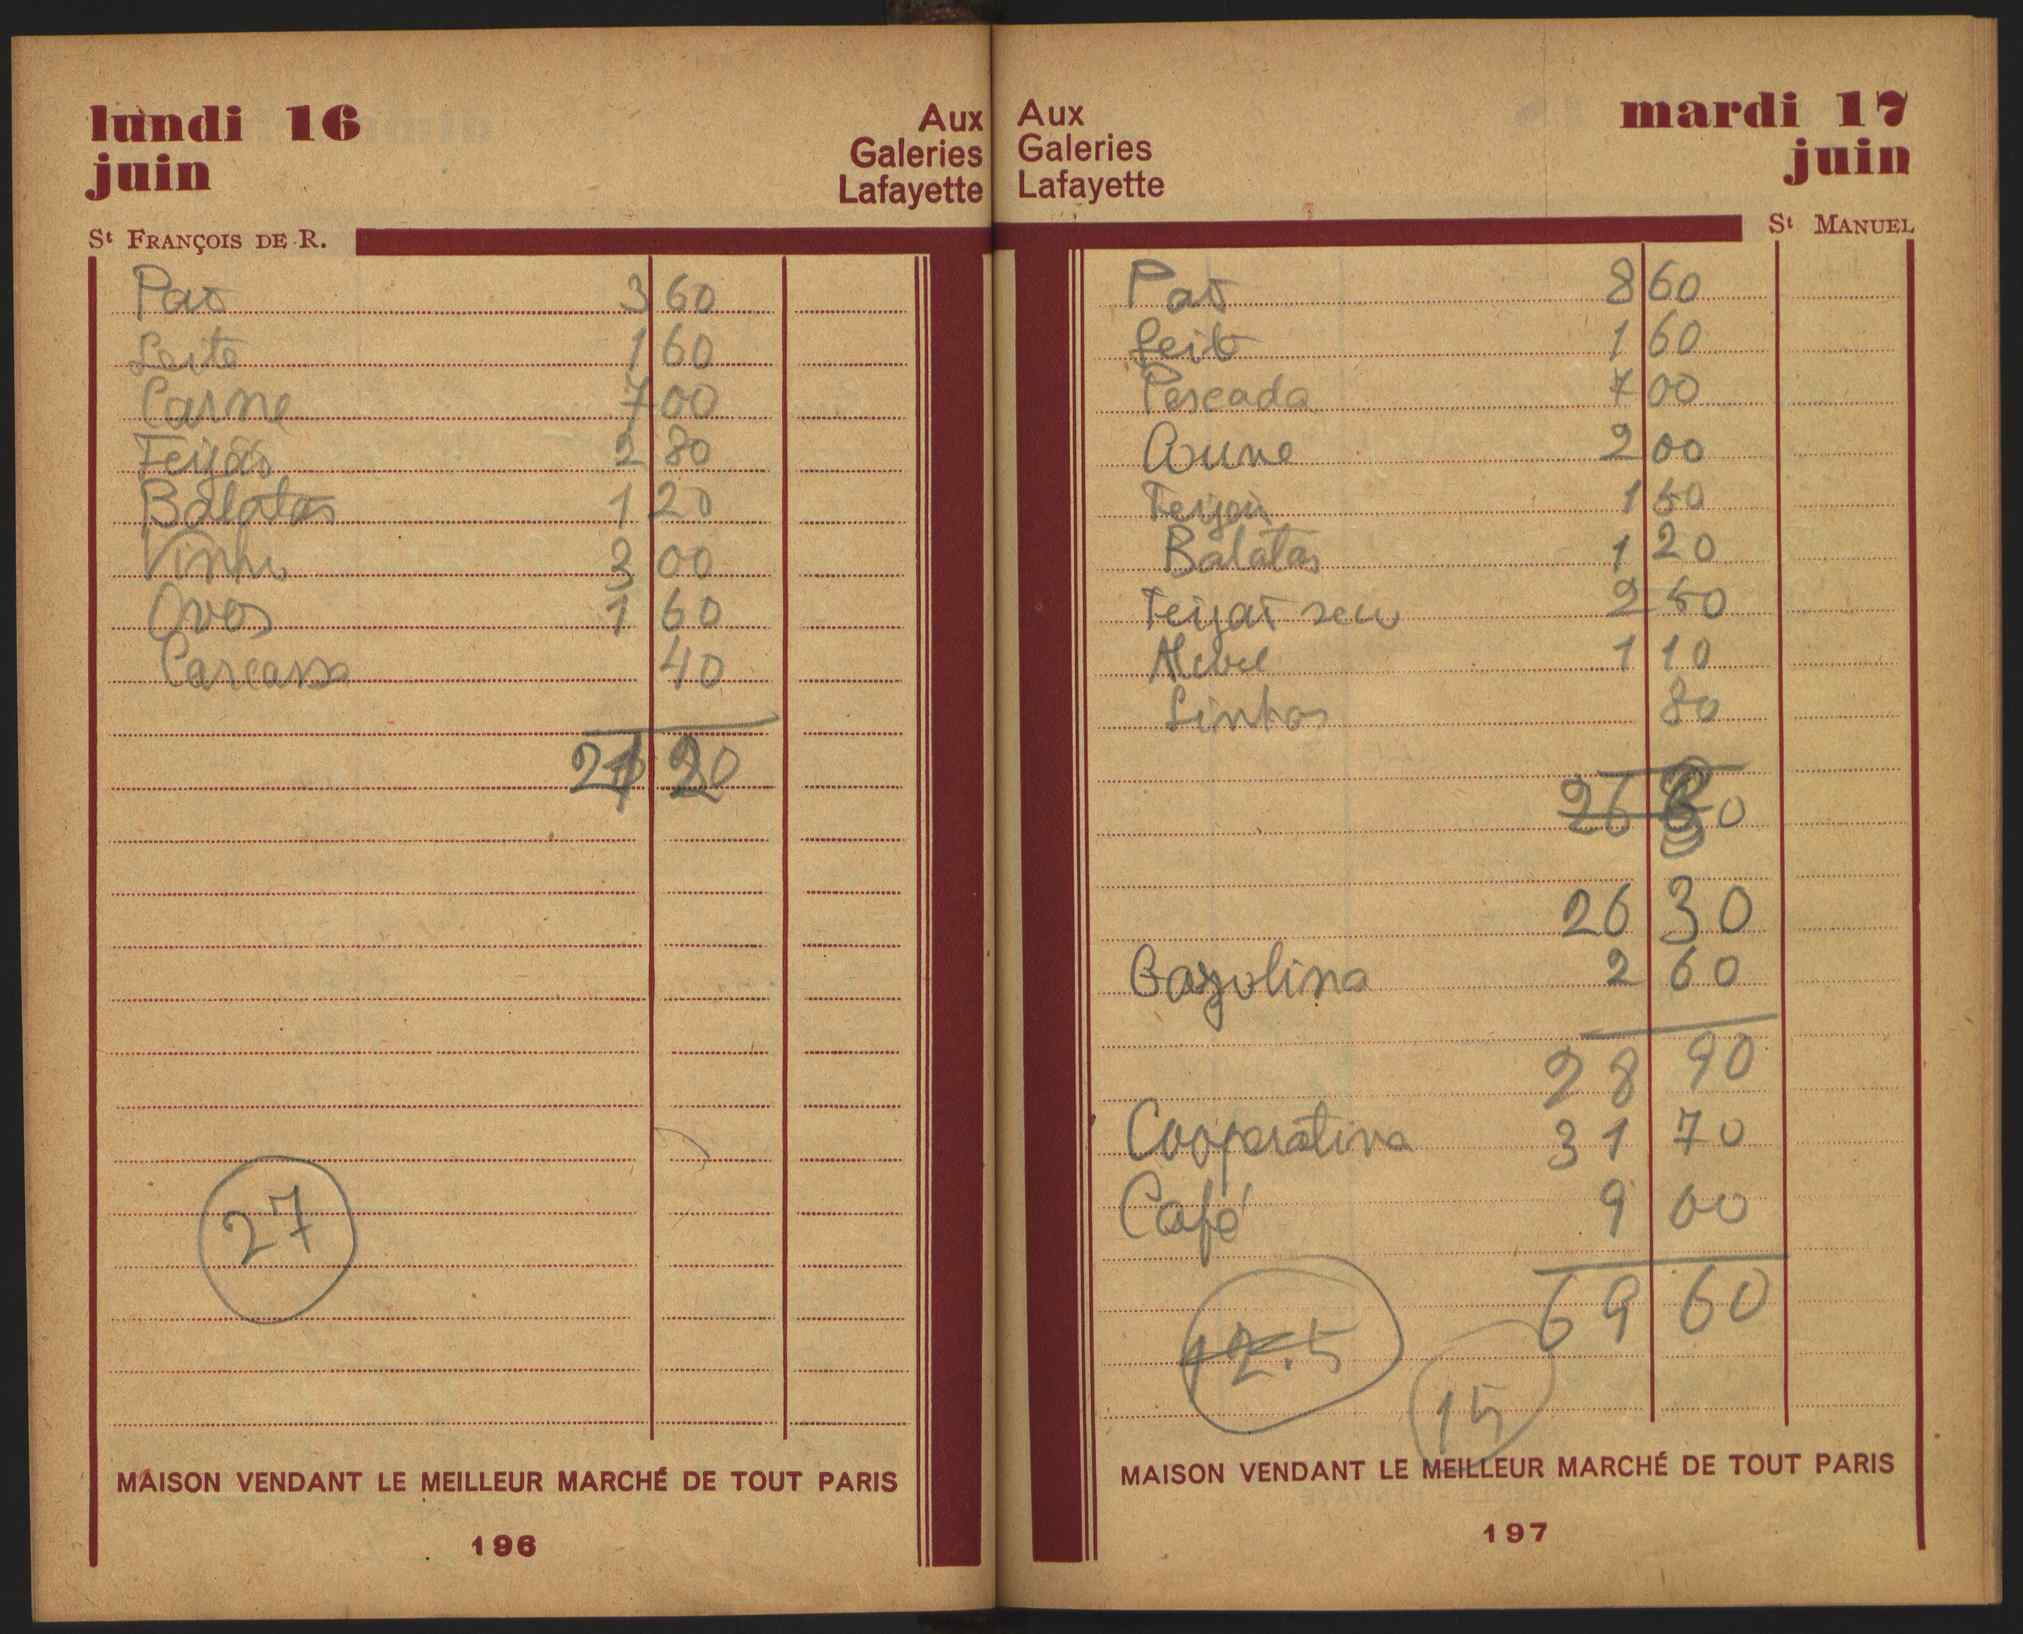 lundi 16
juin
Aux
Galeries
Lafayette
St FRANÇOIS DE R.
Pao 3 60
Leite 1 60
Carne 7 00
Feijão 2 80
Batatas 1 20
Vinho 3 00
Ovos 1 60
Carcassa 40
21 20
27
MAISON VENDANT LE MEILLEUR MARCHÉ DE TOUT PARIS
196
Aux
Galeries
Lafayette
mardi 17
juin
St MANUEL
Pao 8 60
Leite 1 60
Pescada 7 00
Coune 2 00
Feijao 1 50
Batatas 1 20
Feijao seco 2 50
1 10
Linhas 80
26 0
26 30
Gazolina 2 60
28 90
Cooperativa 31 70
Café 9 00
69 60
12.5
15
MAISON VENDANT LE MEILLEUR MARCHÉ DE TOUT PARIS
197